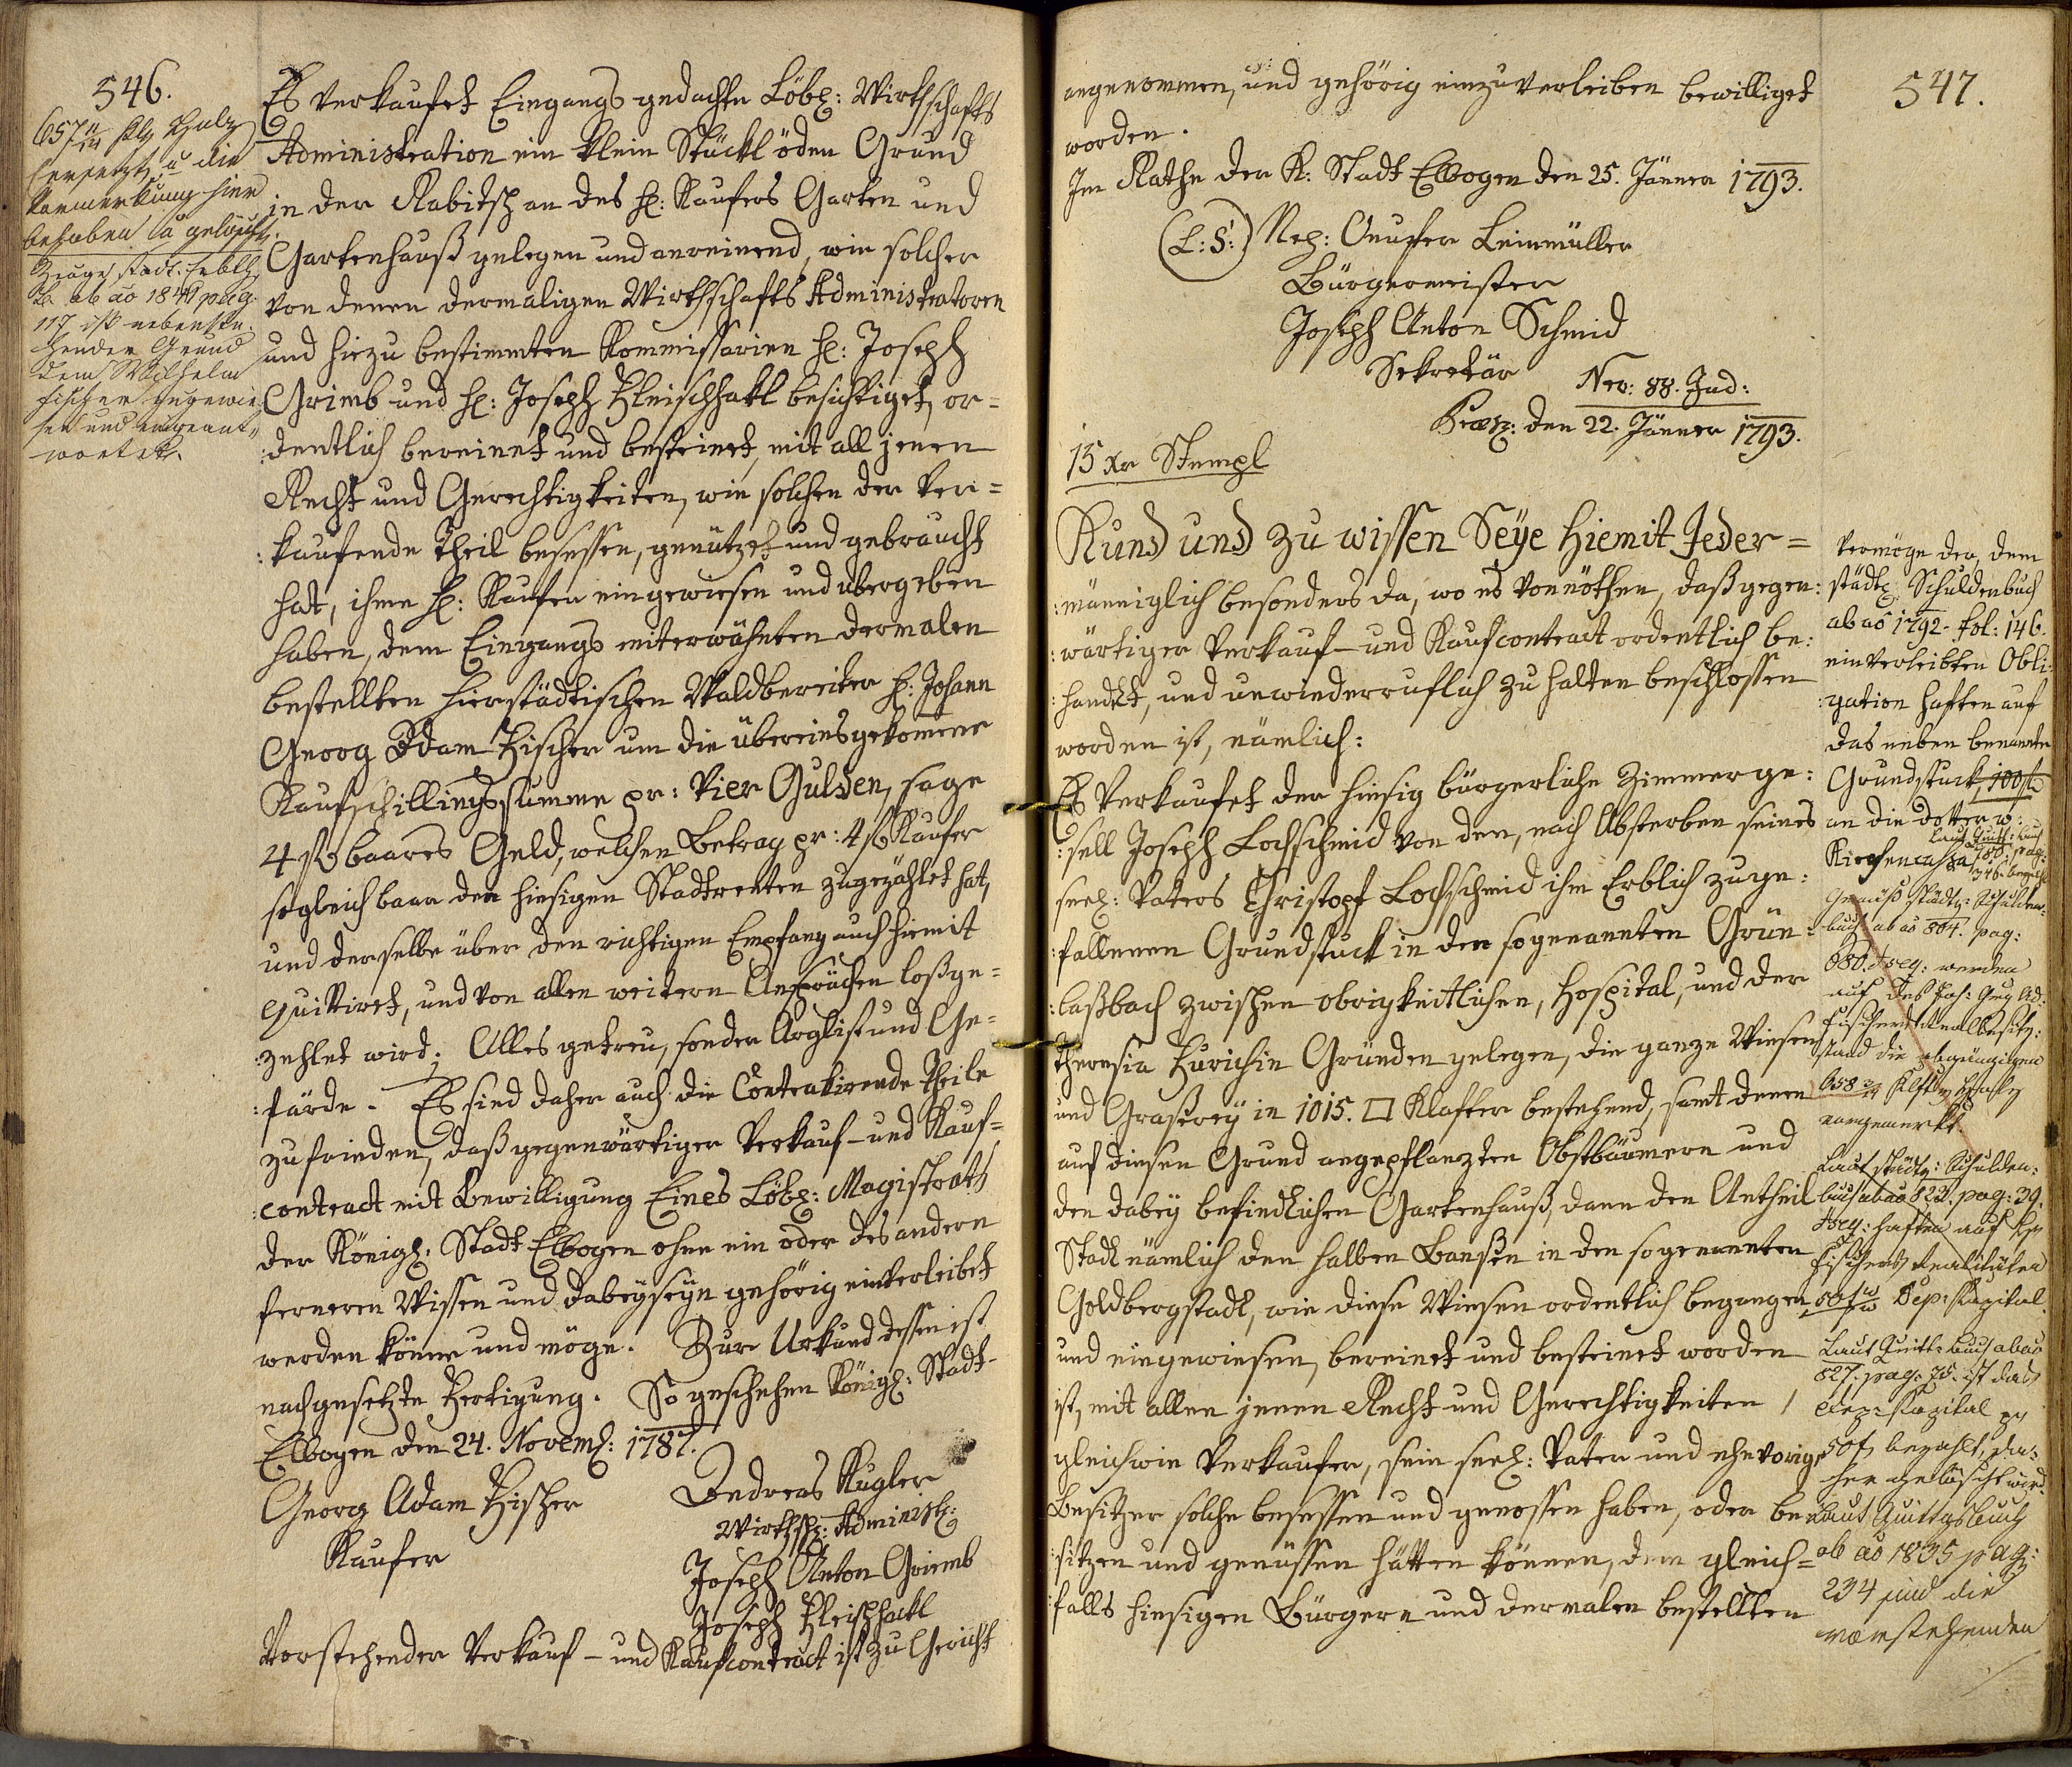 546.
657 11/14 Klf Holz
ersetzt, u die
Vormerkung hier
behoben u gelöscht.
Zeuge stadt.
B. ab ao 1841 pag.
117 ist nebenste-
hender Grund
dem Wilhelm
Fischer zugewie-
sen und eingeant-
wortet.
Es verkaufet Eingangs gedachte Löbl: Wirthschafts
Administration ein klein Stückl öden Grund
in der Rabitsch an des H: Kaufers Garten und
Gartenhauß gelegen und anreinend, wie solcher
von denen dermaligen Wirthschafts Administratoren
und hiezu bestimmten Kommissarien H: Joseph
Grimb und H: Joseph Fleischhakl besichtiget, or=
:dentlich bereinet und besteinet, mit all jenen
Recht und Gerechtigkeiten, wie solchen der Ver=
:kaufende Theil besessen, genützet und gebraucht
hat, ihme H: Kaufer eingewiesen und übergeben
haben, dem Eingangs miterwähnten dermalen
bestellten hierstädtischen Waldbereiter H: Johann
Georg Adam Fischer um die übereinsgekomene
Kaufschillingssumme pr: Vier Gulden, sage
4 fl baares Geld, welchen Betrag pr: 4 fl Kaufer
sogleich baar den hiesigen Stadtrenten zugezählet hat,
und derselbe über den richtigen Empfang auch hiemit
quittiret, und von allen weitern Ansprüchen loßge=
:zehlet wird. Alles getreu, sonder Arglist und Ge=
:färde. Es sind daher auch die Contrahirende Theile
zufrieden, daß gegenwärtiger Verkauf- und Kauf=
:contract mit Bewilligung Eines Löbl: Magistrats
der Königl: Stadt Elbogen ohne ein oder des andern
ferneren Wissen und Dabeyseyn gehörig einverleibet
werden könne und möge. Zur Urkund dessen ist
nachgesetzte Fertigung. So geschehen Königl: Stadt
Elbogen den 24. Novemb: 1787.
Georg Adam Fischer
Kaufer
Andreas Kugler
Wirthsch: Administ:
Joseph Anton Griemb
Joseph Fleischhackl
Vorstehender Verkauf- und Kaufcontract ist zu Gericht
547.
angenommen, und gehörig einzuverleiben bewilliget
worden.
Im Rathe der K: Stadt Elbogen den 25. Jänner 1793.
(L:S:) Leinmüller
Bürgermeister
Joseph Anton Schmid
Sekretär
Nro: 88. Jud:
Præs: den 22. Jänner 1793.
15 xr Stempl
Kund und zu wissen Seye hiemit Jeder=
:männiglich besonders da, wo es vonnöthen, daß gegen:
:wärtiger Verkauf- und Kaufcontract ordentlich be:
:handlet, und unwiederruflich zu halten beschlossen
worden ist, nämlich:
Es verkaufet der hiesig bürgerliche Zimmerge:
:sell Joseph Lochschmid von den, nach Absterben seines
seel: Vaters Christoph Lochschmid ihm Erblich zuge:
:fallenen Grundstuck in der sogenannten Grün:
:laßbach zwischen obrigkeitlichen, Hospital, und der
Theresia Zurichin Gründen gelegen, die ganze Wiesen
und Graßerey in 1015. □ Klafter bestehend, samt denen
auf diesen Grund angepflanzten Obstbäumern und
den dabey befindlichen Gartenhauß, dann den Antheil
Stadl nämlich den halben Bansen in den sogenannten
Goldbergstadl, wie diese Wiesen ordentlich begangen,
und eingewiesen, bereinet und besteinet worden
ist, mit allen jenen Recht und Gerechtigkeiten /
gleichwie Verkaufer, sein seel: Vater und ehevorige
Besitzer solche besessen und genossen haben, oder be
:sitzen und genüssen hätten können, dem gleich=
:falls hiesigen Bürgern und dermalen bestellten
Vermöge der, dem
städtl: Schuldenbuch
ab ao 1792. fol: 146.
einverleibten Obli:
:gation haften auf
das neben benannte
Grundstuck, 100 fl
an die Dotterw:
Kirchencassa
laut Quitt: Buch
pag:
346. bezahlt
Gemäß städtl: Schulden-
buch ab ao 804. pag:
680. werden
auf des Joh: Grg Ad:
Fischers Realbesitz:
stand die abgängigen
658 Klftr Holz
vorgemerkt.
Laut städtl: Schulden:
buch ab ao 822. pag: 39.
haften auf
Fischers Realitäten
50 f Dep: Kapital
Laut Quitt: Buch ab ao
827. pag. 75. ist das
Dep: Kapital pr
50 f bezahlt, da-
her gelöscht wird.
Laut Quittgsbuch
ab ao 1835 pag:
234 sind die
vorstehenden